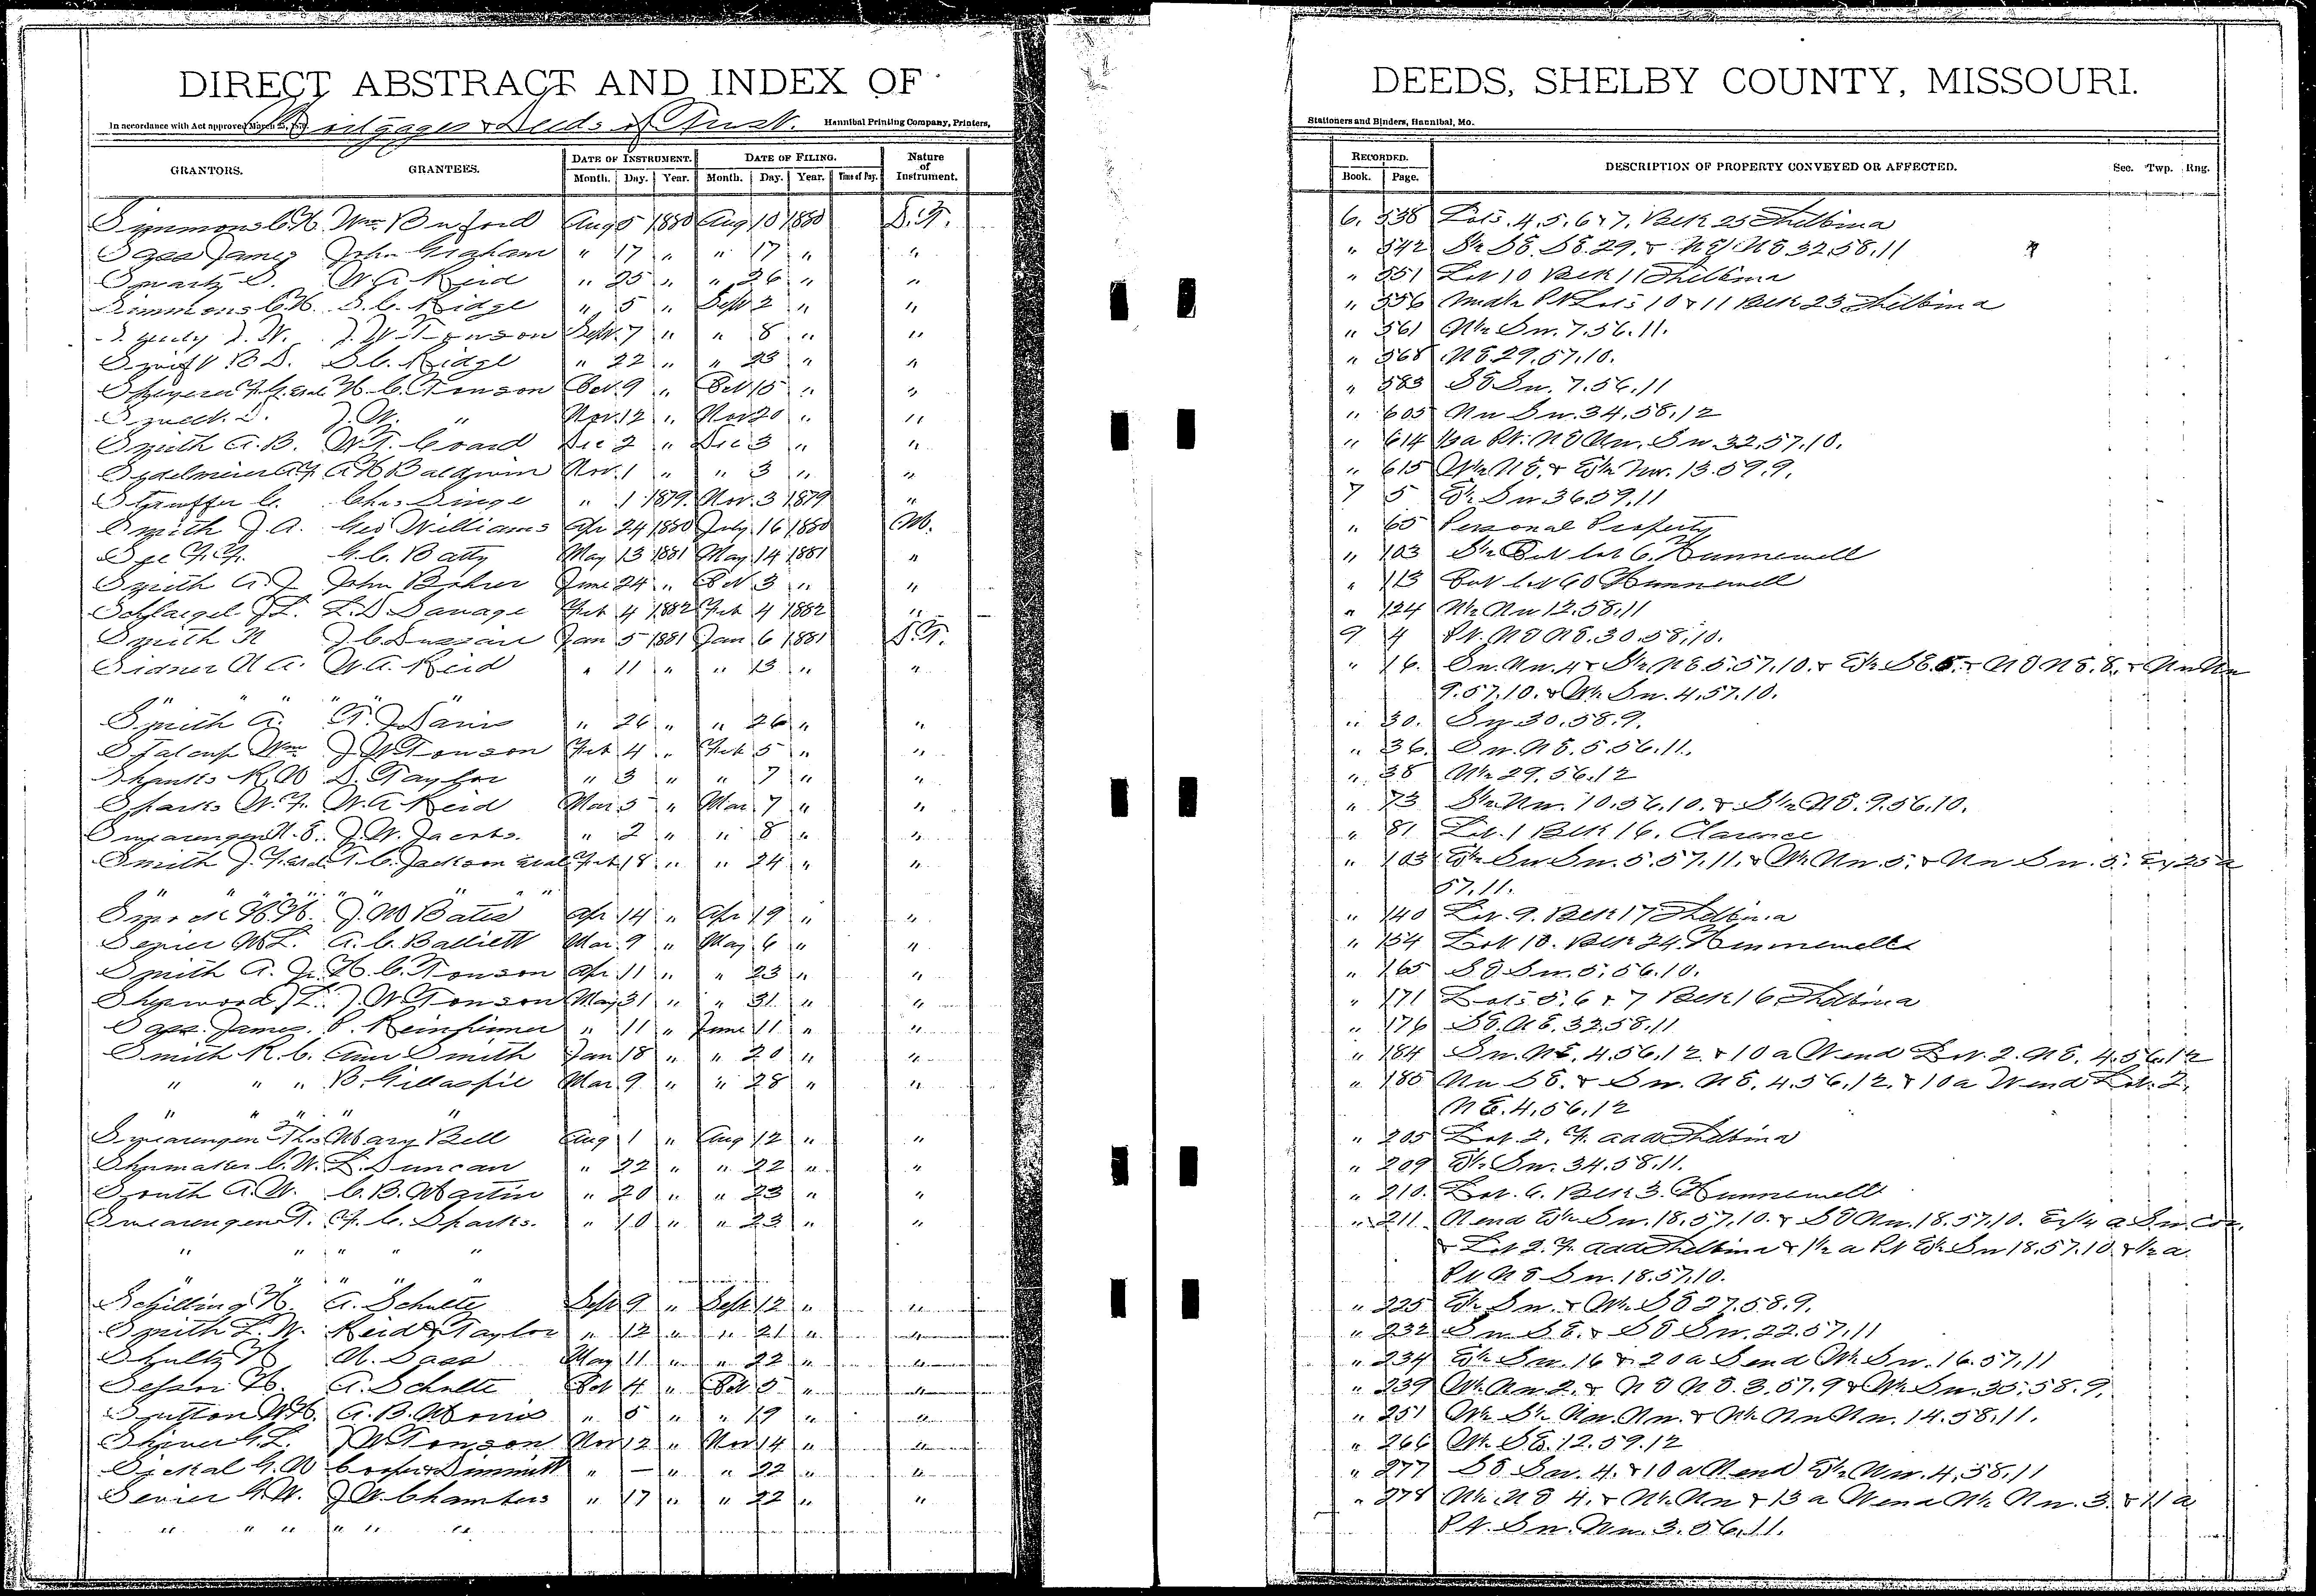 DIRECT ABSTRACT AND INDEX OF
Mortgages & Deeds of Trust.
In accordance with Act approved March Hannibal Printing Company, Printers,
GRANTORS. GRANTEES. DATE OF INSTRUMENT. DATE OF FILING. Nature of Instrument.
Month. Day. Year. Month. Day. Year. Time of Day.
Simmons C.H. Wm. Buford Aug 5 1880 Aug 10 1880 D.T.
James John Graham " 17 " " 17 " "
Swartz W.A. Reid " 25 " " 26 " "
Simmons C.H. S.C. Ridge " 5 " Sept 2 " "
J.W. Towson Sept. 7 " " 8 " "
Swift R.D. S.C. Ridge " 22 " " 23 " "
H.C. Towson Oct. 9 " Oct 15 " "
J.W. " Nov. 12 " Nov 20 " "
Smith A.B. W.T. Coard Dec 2 " Dec 3 " "
A.H. Baldwin Nov. 1 " " 3 " "
Stauffer C. Chas " 1 1879. Nov. 3 1879 "
Smith J.A. Geo Williams Apr 24 1880 July 16 1880 M.
See G.C. Batty May 13 1881 May 14 1881 "
Smith A.J. John June 24 " Oct. 3 " "
Schlaegel J.L. L.D. Savage Feb 4 1882 Feb 4 1882 "
Smith N J.C. Jan 5 1881 Jan 6 1881 D.T.
Sidner A. W.A. Reid " 11 " " 13 " "
" " " " "
Smith A. T.J. Davis " 26 " " 26 " "
Stalcup Wm J.W. Towson Feb 4 " Feb 5 " "
Shanks R.M D. Taylor " 3 " " 7 " "
Sparks W.F. W.A. Reid Mar 5 " Mar. 7 " "
Swearengen J.W. Jacobs. " 2 " " 8 " "
Smith J.F. et al T.C. Jackson et al Feb 18 " " 24 " "
" " " " " " " " "
J.M Bates Apr 14 " Apr 19 " "
Sevier M.L. A.C. Balliett Mar. 9 " May 6 " "
Smith A.J. H.C. Towson Apr. 11 " " 23 " "
Sherwood J.L. J.W. Towson May 31 " " 31 " "
James. P. " 11 " June 11 " "
Smith R.C. Ann Smith Jan 18 " " 20 " "
" " " B. Gillaspie Mar. 9 " " 28 " "
" " " " "
Swearengen Thos Mary Bell Aug 1 " Aug 12 " "
Shumaker C.W. L. Duncan " 22 " " 22 " "
South A.W. C.B. Martin " 20 " " 23 " "
Swearengen T. F.C. Sparks. " 10 " " 23 " "
" " " " "
" " " "
Schilling H. A. Schulte Sept 9 " Sept 12 " "
Smith L.W. Reid & Taylor " 12 " " 21 " "
Shultz H M. Sass May 11 " " 22 " "
A. Schulte Oct 4 " Oct 5 " "
Sutton W.H. A.B. " 5 " " 19 " "
G.L. J.W. Towson Nov 12 " Nov 14 " "
G.W Cooper & Dimmitt " — " " 22 " "
Sevier G.W. J.W. Chambers " 17 " " 22 " "
" " " " " "
DEEDS, SHELBY COUNTY, MISSOURI.
Stationers and Binders, Hannibal, Mo.
RECORDED. DESCRIPTION OF PROPERTY CONVEYED OR AFFECTED. Sec. Twp. Rng.
Book. Page.
6. 538 Lots. 4.5.6 & 7. Blk 25 Shelbina
" 542 S½ SE. SE. 29. & NE NE 32.58.11
" 551 Lot 10 Blk 11 Shelbina
" 556 Lots 10 & 11 Blk 23 Shelbina
" 561 N½ Sw. 7.56.11.
" 568 NE. 29.57.10.
" 583 SE Sw. 7.56.11
" 605 Nw Sw. 34.58.12
" 614 Pt. NE Nw. Sw. 32.57.10.
" 615 W½ NE. & E½ Nw. 13.59.9.
7 5 E½ Sw 36.59.11
" 65 Personal Property
" 103 S½ Out lot 6. Hunnewell
" 113 Out lot 60 Hunnewell
" 124 N½ Nw 12.58.11
9 4 Pt. NE NE. 30.58.10.
" 16. Sw. Nw. 4 & S½ NE. 5.57.10. & E½ SE. 5. & NE NE. 8. & Nw Nw
9.57.10. & W½ Sw. 4.57.10.
" 30. 30.58.9.
" 36. Sw. NE. 5.56.11.
" 38 N½ 29.56.12
" 73 S½ Nw. 10.56.10. & S½ NE. 9.56.10.
" 81 Lot. 1 Blk 16. Clarence
" 103 E½ Sw Sw. 5.57.11. & W½ Nw. 5. & Nw Sw. 5. Ex 25 a
57.11.
" 140 Lot. 9. Blk 17 Shelbina
" 154 Lot 10. Blk 24. Hunnewell
" 165 SE Sw. 5.56.10.
" 171 Lots 5.6 & 7 Blk 16 Shelbina
" 176 SE. NE. 32.58.11
" 184 Sw. NE. 4.56.12. & 10 a W end Lot. 2. NE. 4.56.12
" 185 Nw SE. & Sw. NE. 4.56.12. & 10 a W end Lot. 2.
NE. 4.56.12
" 205 Lot. 2. F. add Shelbina
" 209 E½ Sw. 34.58.11.
" 210. Lot. 6. Blk 3. Hunnewell
" 211 N end E½ Sw. 18.57.10. & SE Nw. 18.57.10. Ex ¼ a Sw. Cor.
& Lot 2. F. add Shelbina & 1½ a Pt E½ Sw 18.57.10 & ½ a
Pt NE Sw. 18.57.10.
" 225 E½ Sw. & W½ SE 27.58.9.
" 232 Sw SE. & SE Sw. 22.57.11
" 234 E½ Sw. 16 & 20 a S end W½ Sw. 16.57.11
" 239 W½ Nw. 2. & NE NE. 3.57.9 & W½ Sw. 35.58.9.
" 251 W½ S½ Nw. Nw. & N½ Nw Nw. 14.58.11.
" 266 W½ SE. 12.59.12
" 277 SE Sw. 4. & 10 a N end E½ Nw. 4.58.11
" 278 N½ NE 4. & N½ Nw & 13 a W end N½ Nw. 3. & 11 a
Pt. Sw. Nw. 3.56.11.